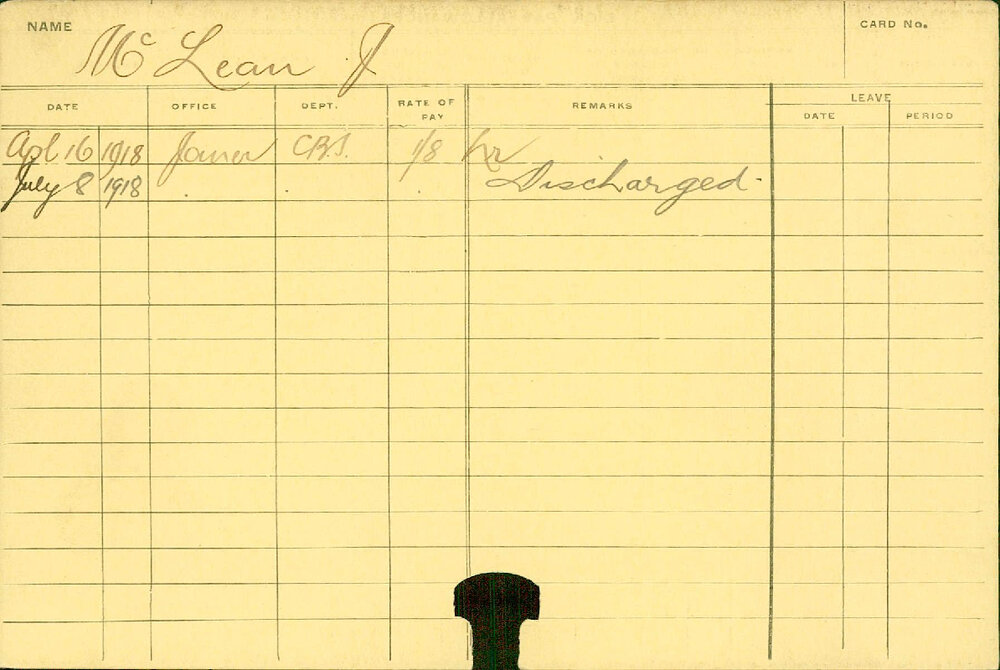 NAME McLean J CARD No.
DATE OFFICE DEPT. RATE OF PAY REMARKS LEAVE
DATE PERIOD
Apl 16 1918 Joiner C.B.S. 1/8 hr
July 8 1918 . . . Discharged.